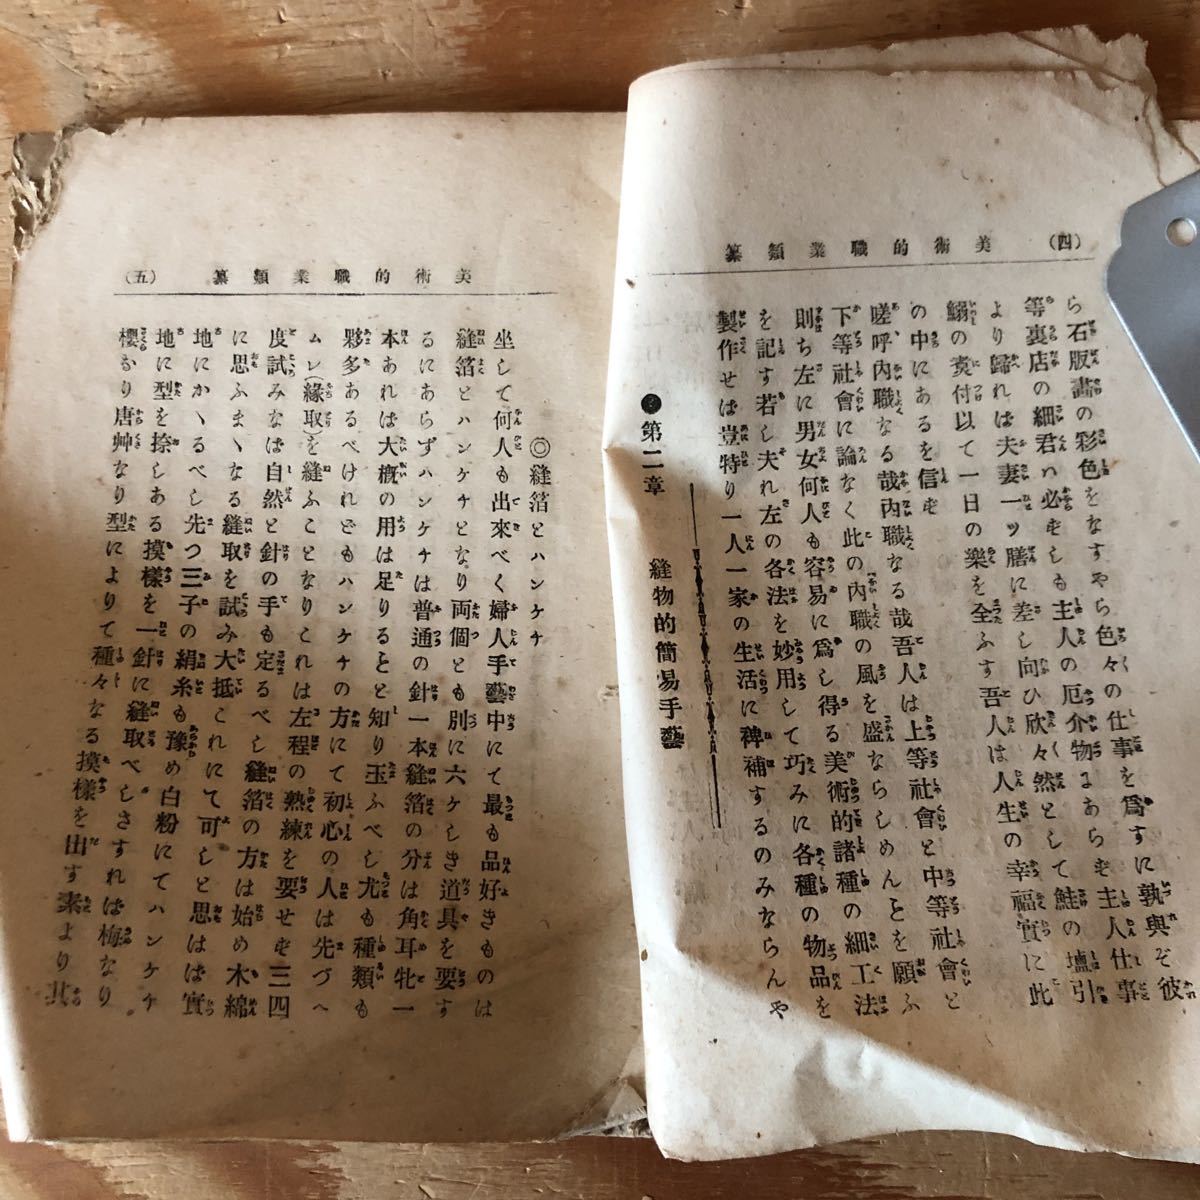 (四) 美術的職業類纂
ら石版畫の彩色をなすやら色々の仕事を爲すに孰與ぞ彼
等裏店の細君ハ必ずしも主人の厄介物にあらず主人仕事
より歸れは夫妻一ッ膳に差し向ひ欣々然として鮭の塩引
鰯の煑付以て一日の樂を全ふす吾人は人生の幸福實に此
の中にあるを信ず
嗟呼、内職なる哉内職なる哉吾人は上等社會と中等社會と
下等社會に論なく此の内職の風を盛ならしめんとを願ふ
則ち左に男女何人も容易に爲し得る美術的諸種の細工法
を記す若し夫れ左の各法を妙用して巧みに各種の物品を
製作せは豈特り一人一家の生活に裨補するのみならんや
●第二章 縫物的簡易手藝
(五) 美術的職業類纂
◎縫箔とハンケチ
坐して何人も出來べく婦人手藝中にて最も品好きものは
縫箔とハンケチとなり両個とも別に六ケしき道具を要す
るにあらずハンケチは普通の針一本縫箔の分は角耳牝一
本あれは大概の用は足りるとと知り玉ふべし尤も種類も
夥多あるべけれどもハンケチの方にて初心の人は先づヘ
ムレ(緣取)を縫ふことなりこれは左程の熟練を要せず三四
度試みなは自然と針の手も定るべし縫箔の方は始め木綿
に思ふまゝなる縫取を試み大抵これにて可しと思はゞ實
地にかゝるべし先つ三子の絹糸も豫め白粉にてハンケチ
地に型を捺しある摸様を一針に縫取べしさすれは梅なり
櫻なり唐艸なり型によりて種々なる摸様を出す素より其